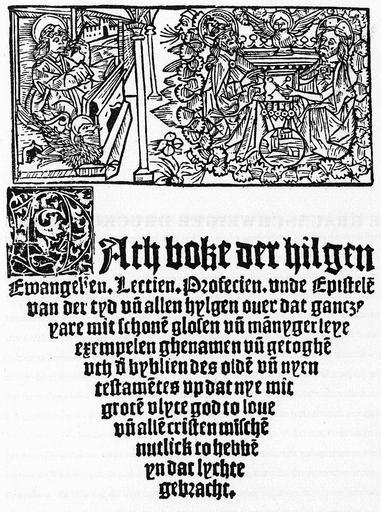 DAth boke der hilgen
Ewangelien. Lectien. Profecien. vnde Epistelē
van der tyd vn̄ allen hylgen ouer dat gancze
yare mit schonē glosen vn̄ mānygerleye
exempelen ghenamen vn̄ getoghē
vth d̄ byblien des oldē vn̄ nyen
testamētes vp dat nye mit
grotē vlyte god to loue
vn̄ allē cristen mīschē
nutlick to hebbē
yn dat lychte
gebracht.